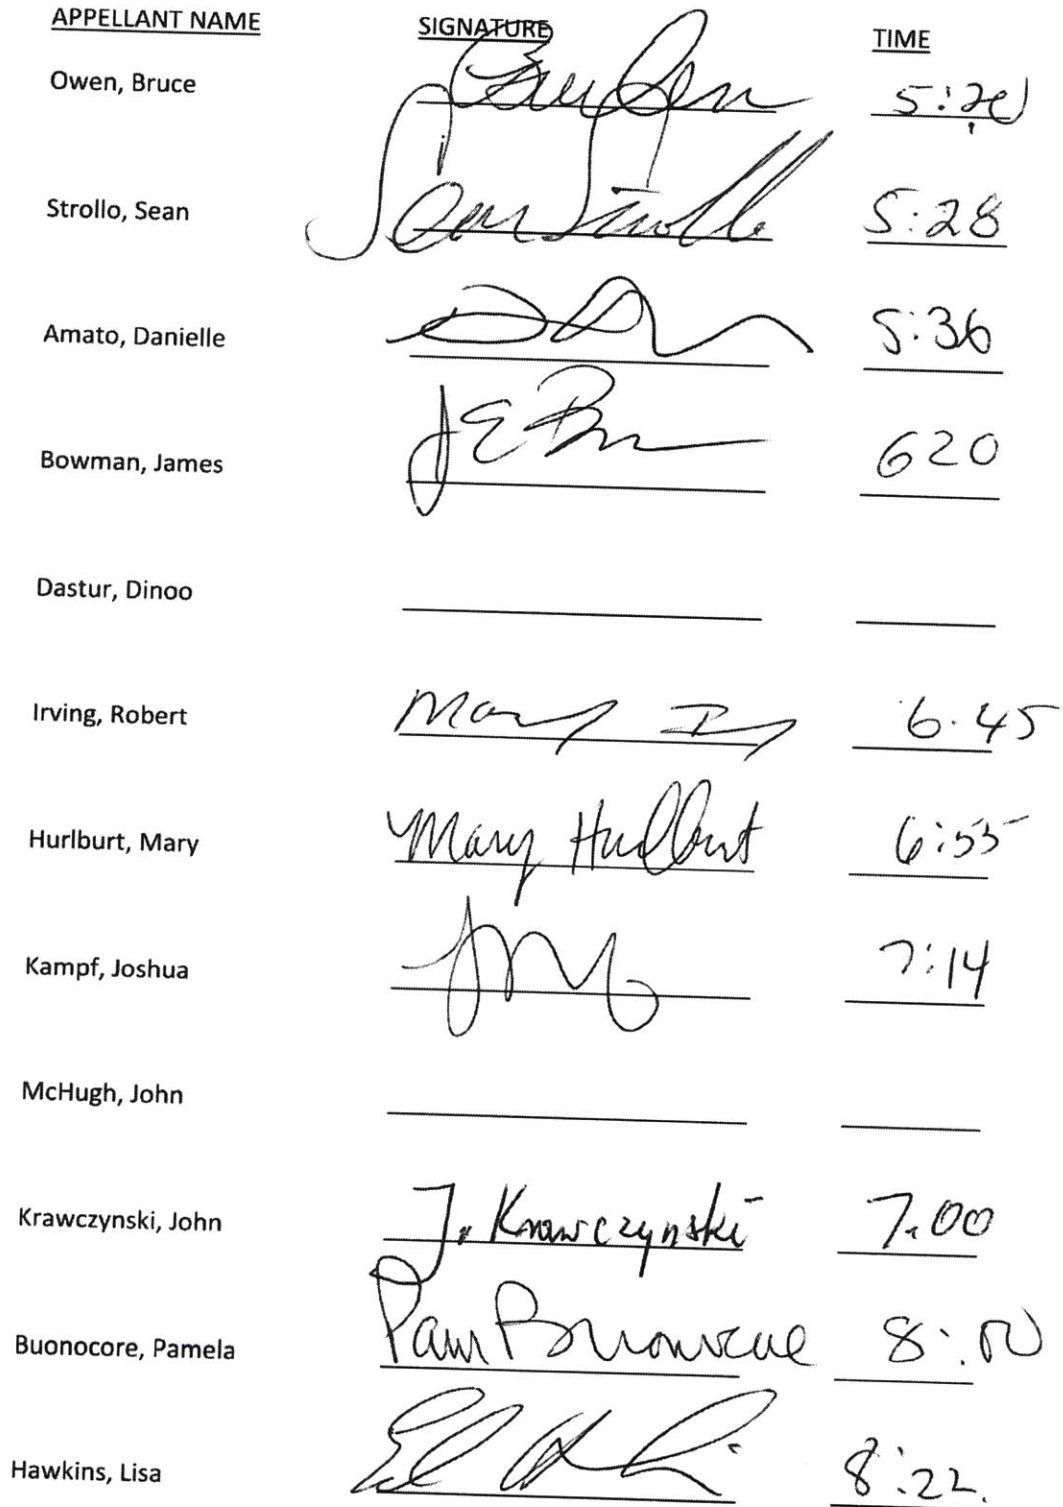 APPELLANT NAME SIGNATURE TIME
Owen, Bruce 5:20
Strollo, Sean Sean Strollo 5:28
Amato, Danielle 5:36
Bowman, James JEB 620
Dastur, Dinoo
Irving, Robert Mary 6.45
Hurlburt, Mary Mary Hurlburt 6:55
Kampf, Joshua 7:14
McHugh, John
Krawczynski, John J. Krawczynski 7.00
Buonocore, Pamela Pam Buonocore 8:00
Hawkins, Lisa 8:22